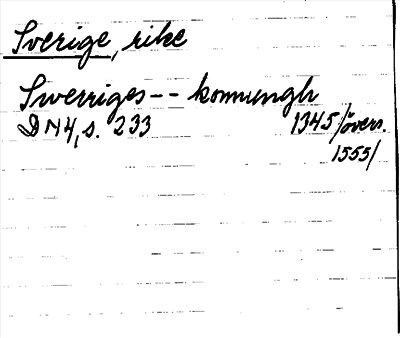 Sverige, rike
Swerriges -- konnungh
DN4, s. 233 1345/övers.
1555/